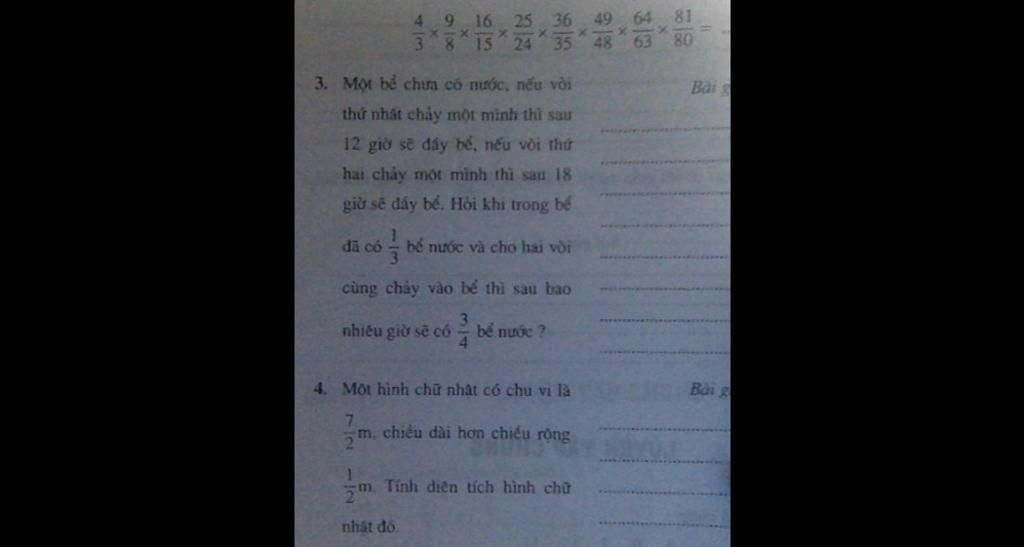 4/3 × 9/8 × 16/15 × 25/24 × 36/35 × 49/48 × 64/63 × 81/80 = ...
3. Một bể chưa có nước, nếu vòi
Bài g
thứ nhất chảy một mình thì sau
12 giờ sẽ đầy bể, nếu vòi thứ
hai chảy một mình thì sau 18
giờ sẽ đầy bể. Hỏi khi trong bể
đã có 1/3 bể nước và cho hai vòi
cùng chảy vào bể thì sau bao
nhiêu giờ sẽ có 3/4 bể nước ?
4. Một hình chữ nhật có chu vi là
Bài g
7/2 m, chiều dài hơn chiều rộng
1/2 m. Tính diện tích hình chữ
nhật đó.